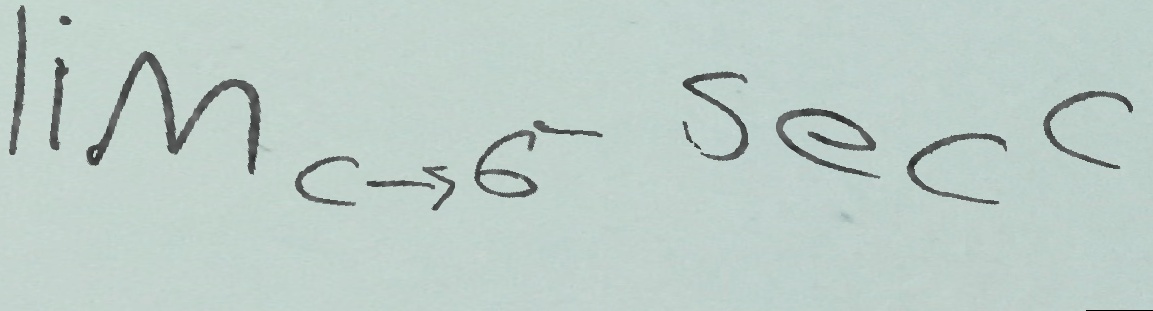 lim_{c→6^-} sec c